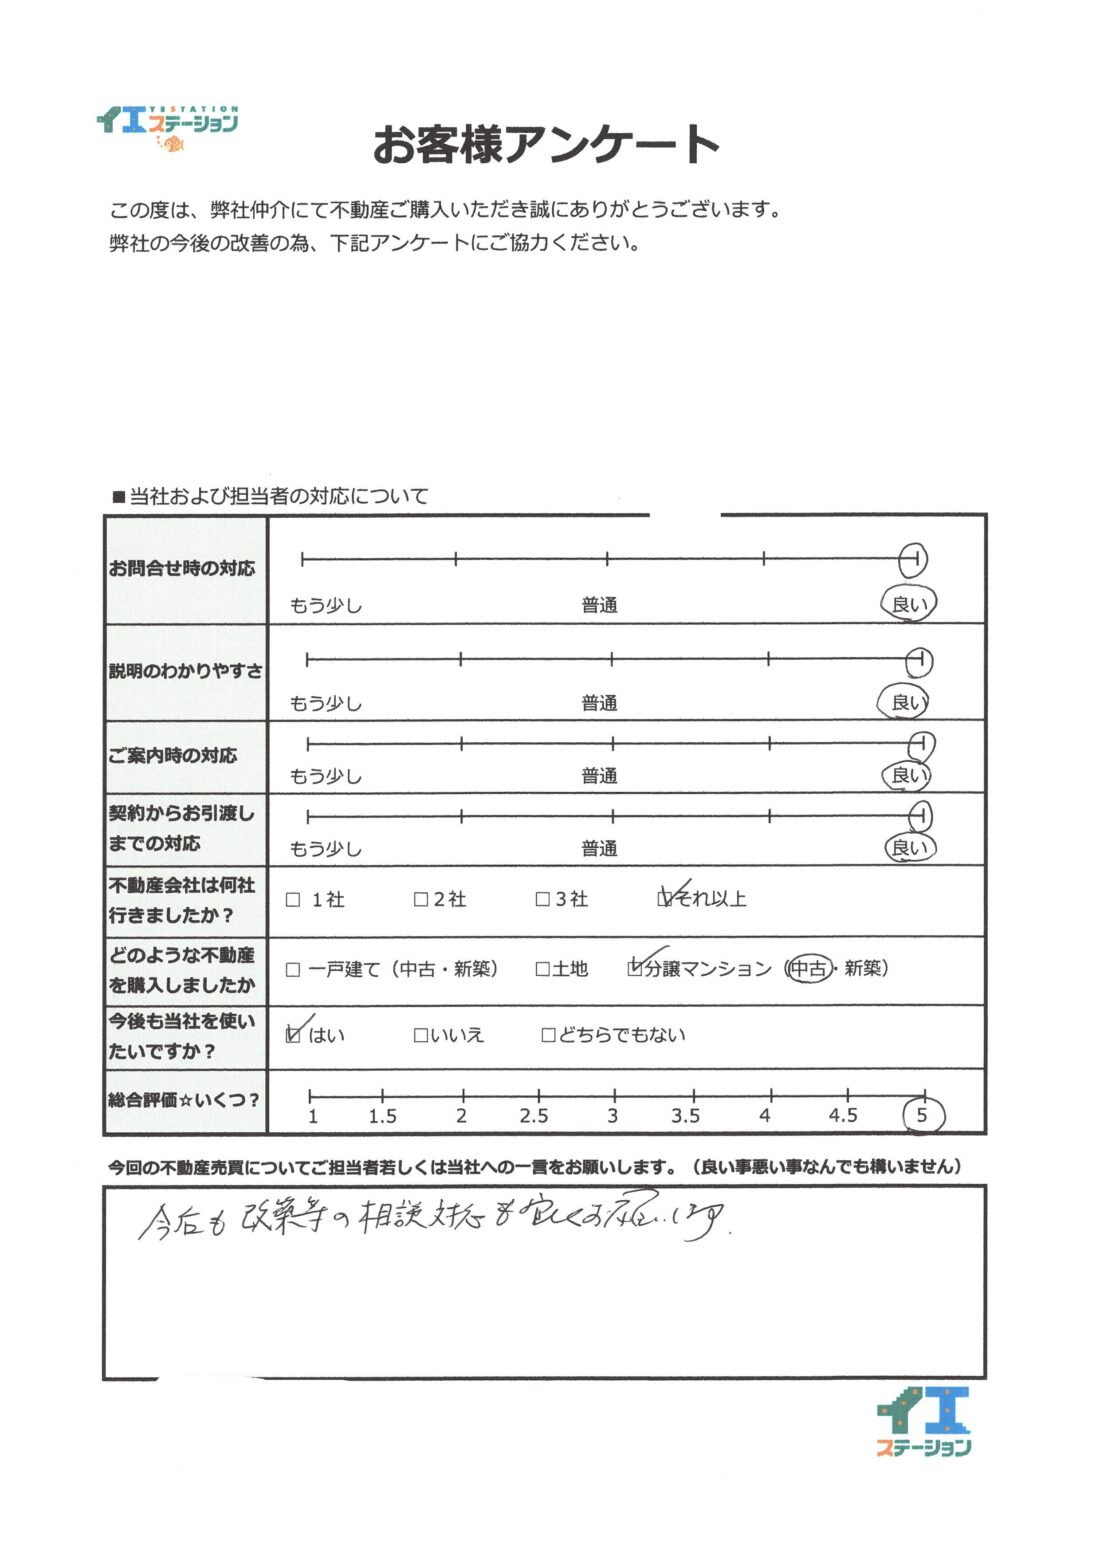 イエ YESTATION
ステーション
お客様アンケート
この度は、弊社仲介にて不動産ご購入いただき誠にありがとうございます。
弊社の今後の改善の為、下記アンケートにご協力ください。
■当社および担当者の対応について
お問合せ時の対応
もう少し 普通 良い
説明のわかりやすさ
もう少し 普通 良い
ご案内時の対応
もう少し 普通 良い
契約からお引渡し
までの対応
もう少し 普通 良い
不動産会社は何社
行きましたか？
□ 1社 □2社 □3社 ☑それ以上
どのような不動産
を購入しましたか
□ 一戸建て（中古・新築） □土地 ☑分譲マンション（中古・新築）
今後も当社を使い
たいですか？
☑ はい □いいえ □どちらでもない
総合評価☆いくつ？
1 1.5 2 2.5 3 3.5 4 4.5 5
今回の不動産売買についてご担当者若しくは当社への一言をお願いします。（良い事悪い事なんでも構いません）
今后も改築等の相談対応も宜しくお願いします.
イエ
ステーション